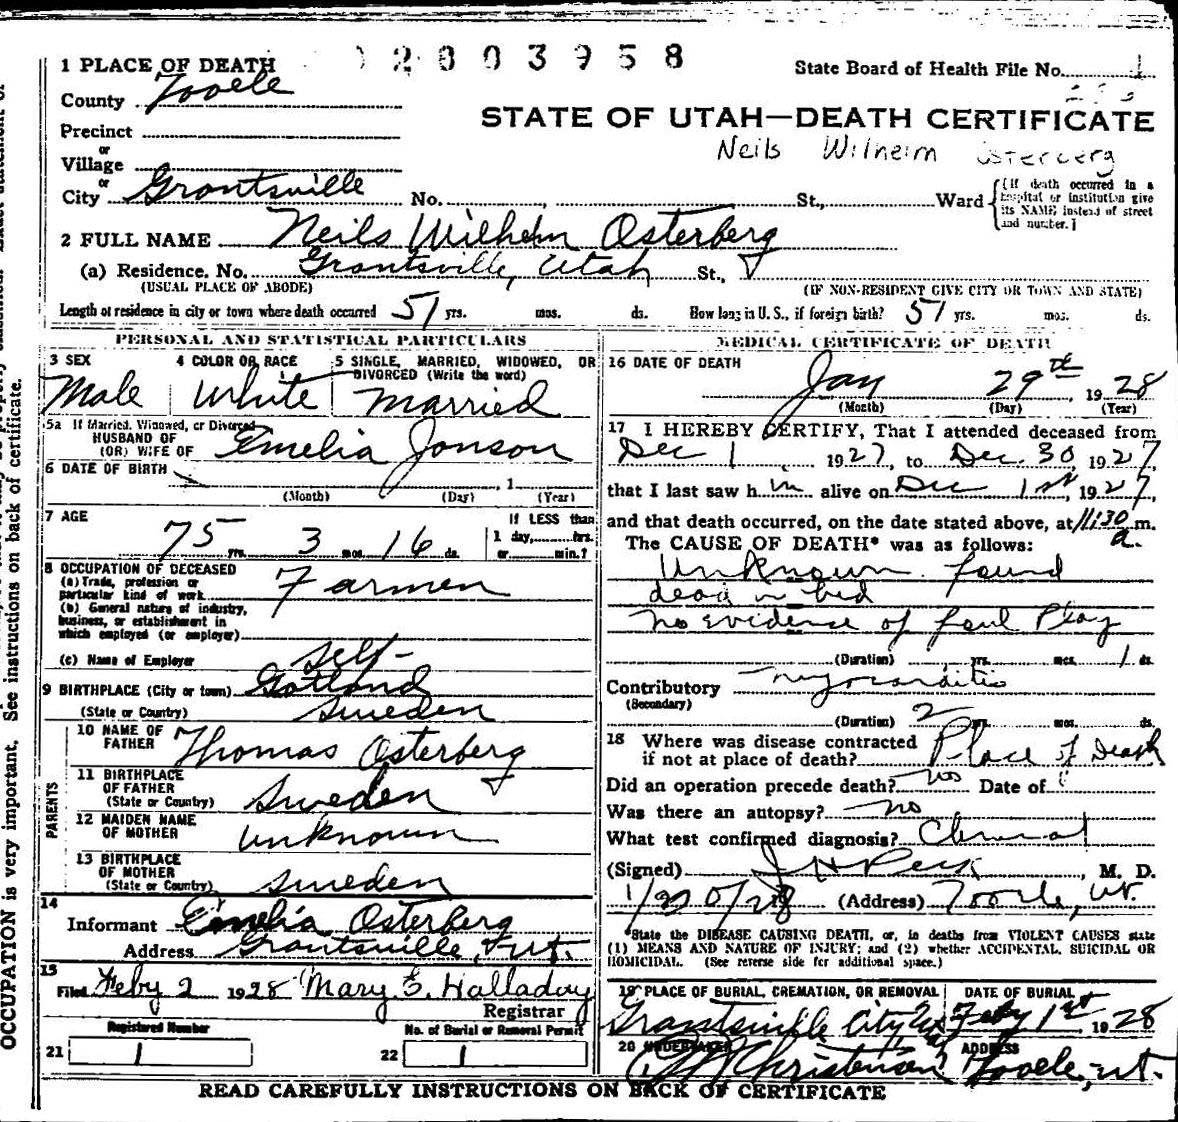 2803958
State Board of Health File No.
1 PLACE OF DEATH
County Tooele
STATE OF UTAH—DEATH CERTIFICATE
Precinct
Neils Wilhelm Osterberg
or
Village
or
City Grantsville No. , St., Ward
{(If death occurred in a
hospital or institution give
its NAME instead of street
and number.]
2 FULL NAME Neils Wilhelm Osterberg
(a) Residence. No. Grantsville, Utah St.,
(USUAL PLACE OF ABODE) (IF NON-RESIDENT GIVE CITY OR TOWN AND STATE)
Length of residence in city or town where death occurred 51 yrs. mos. ds. How long in U. S., if foreign birth? 51 yrs. mos. ds.
PERSONAL AND STATISTICAL PARTICULARS
3 SEX 4 COLOR OR RACE 5 SINGLE, MARRIED, WIDOWED, OR
DIVORCED (Write the word)
Male White married
5a If Married, Widowed, or Divorced
HUSBAND OF
(OR) WIFE OF Emelia Jonson
6 DATE OF BIRTH , 1
(Month) (Day) (Year)
7 AGE If LESS than
75 yrs. 3 mos. 16 ds. 1 day, hrs.
or min.?
8 OCCUPATION OF DECEASED
(a) Trade, profession or
particular kind of work Farmer
(b) General nature of industry,
business, or establishment in
which employed (or employer)
(c) Name of Employer self-
9 BIRTHPLACE (City or town) Gotland
(State or Country) Sweden
PARENTS
10 NAME OF
FATHER Thomas Osterberg
11 BIRTHPLACE
OF FATHER
(State or Country) Sweden
12 MAIDEN NAME
OF MOTHER unknown
13 BIRTHPLACE
OF MOTHER
(State or Country) Sweden
14
Informant Emelia Osterberg
Address Grantsville, Ut.
15
Filed Feby 2 1928 Mary E. Halladay
Registrar
Registered Number No. of Burial or Removal Permit
21 1 22 1
MEDICAL CERTIFICATE OF DEATH
16 DATE OF DEATH
Jan 29th 1928
(Month) (Day) (Year)
17 I HEREBY CERTIFY, That I attended deceased from
Dec 1, 1927, to Dec. 30, 1927,
that I last saw him alive on Dec 1st, 1927,
and that death occurred, on the date stated above, at 11:30 a.m.
The CAUSE OF DEATH* was as follows:
Unknown. found
dead in bed
no evidence of foul Play
(Duration) yrs. mos. 1 ds.
Contributory Myocarditis
(Secondary)
(Duration) 2 yrs. mos. ds.
18 Where was disease contracted
if not at place of death? Place of Death
Did an operation precede death? no Date of
Was there an autopsy? no
What test confirmed diagnosis? Clinical
(Signed) J H Peck, M. D.
1/30/28 (Address) Tooele, Ut.
*State the DISEASE CAUSING DEATH, or, in deaths from VIOLENT CAUSES state
(1) MEANS AND NATURE OF INJURY; and (2) whether ACCIDENTAL, SUICIDAL OR
HOMICIDAL. (See reverse side for additional space.)
19 PLACE OF BURIAL, CREMATION, OR REMOVAL DATE OF BURIAL
Grantsville City Feby 1st 1928
20 UNDERTAKER ADDRESS
Christensen Tooele, Ut.
READ CAREFULLY INSTRUCTIONS ON BACK OF CERTIFICATE
OCCUPATION is very important. See instructions on back of certificate.